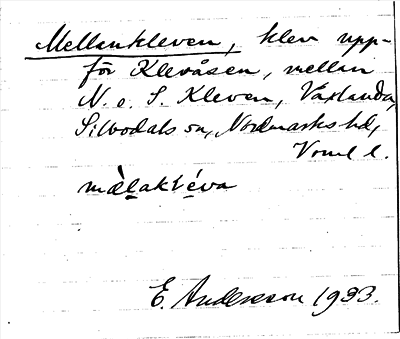 Mellankleven, klev upp-
för Klevåsen, mellan
N. o. S. Kleven, Vaxlanda,
Silbodals sn, Nordmarks hd,
Vrml l.
mæ̀lakléva
E. Andersson 1933.